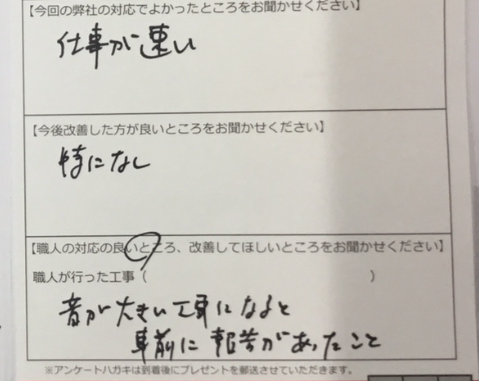 【今回の弊社の対応でよかったところをお聞かせください】
仕事が速い
【今後改善した方が良いところをお聞かせください】
特になし
【職人の対応の良いところ、改善してほしいところをお聞かせください】
職人が行った工事（　　　　　　　　　　　　　　　）
音が大きい工事になると
事前に報告があったこと
※アンケートハガキは到着後にプレゼントを郵送させていただきます。